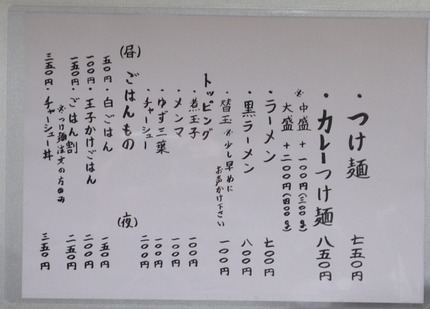 ・つけ麺 七五〇円
・カレーつけ麺 八五〇円
※中盛+一〇〇円(三〇〇g)
大盛+二〇〇円(四〇〇g)
・ラーメン 七〇〇円
・黒ラーメン 八〇〇円
・替玉 ※少し早めにお声かけ下さい 一〇〇円
トッピング
・煮玉子 一〇〇円
・メンマ 一〇〇円
・ゆず三葉 一〇〇円
・チャーシュー 二〇〇円
(昼) ごはんもの (夜)
五〇円・白ごはん 一五〇円
一〇〇円・玉子かけごはん 二〇〇円
一五〇円・ごはん割 二五〇円
※つけ麺注文の方のみ
三五〇円・チャーシュー丼 三五〇円